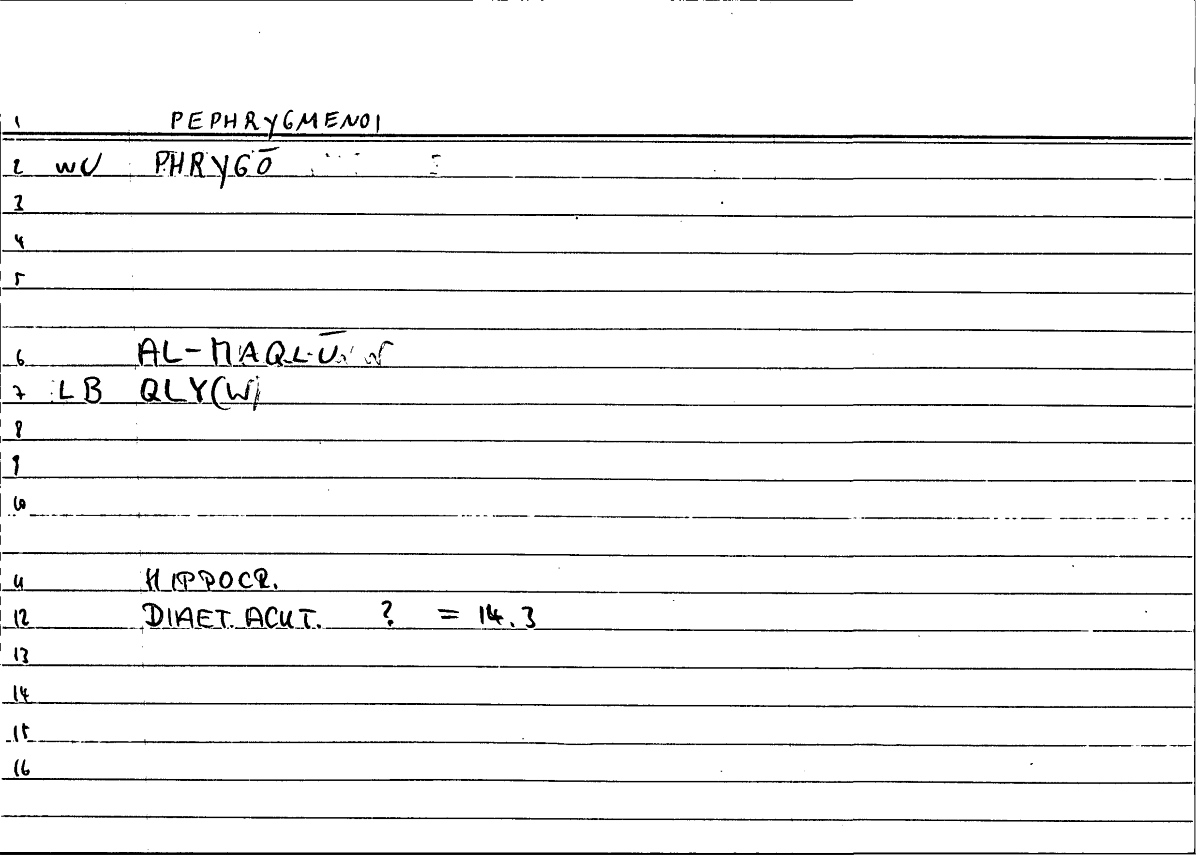 1 PEPHRYGMENOI
2 WU PHRYGŌ
3
4
5
6 AL-MAQLŪW
7 LB QLY(W)
8
9
10
11 HIPPOCR.
12 DIAET. ACUT. ? = 14.3
13
14
15
16